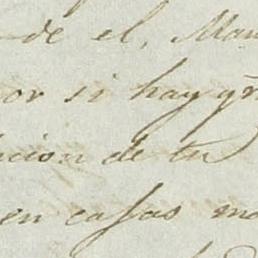 de el, Man
or si hay qn
icion de tu
en casas mo